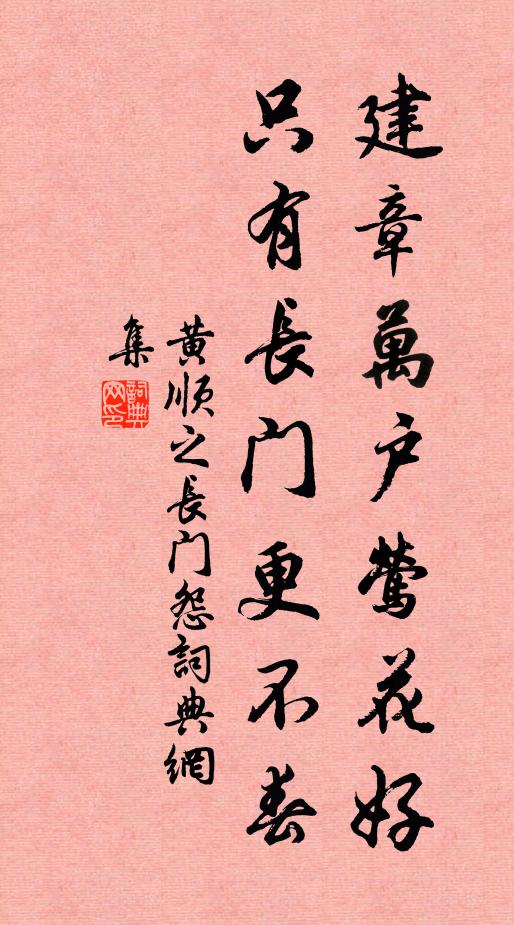 建章萬户鶯花好
只有長門更不春
黃順之長門怨詞典網
集
詞典
网印